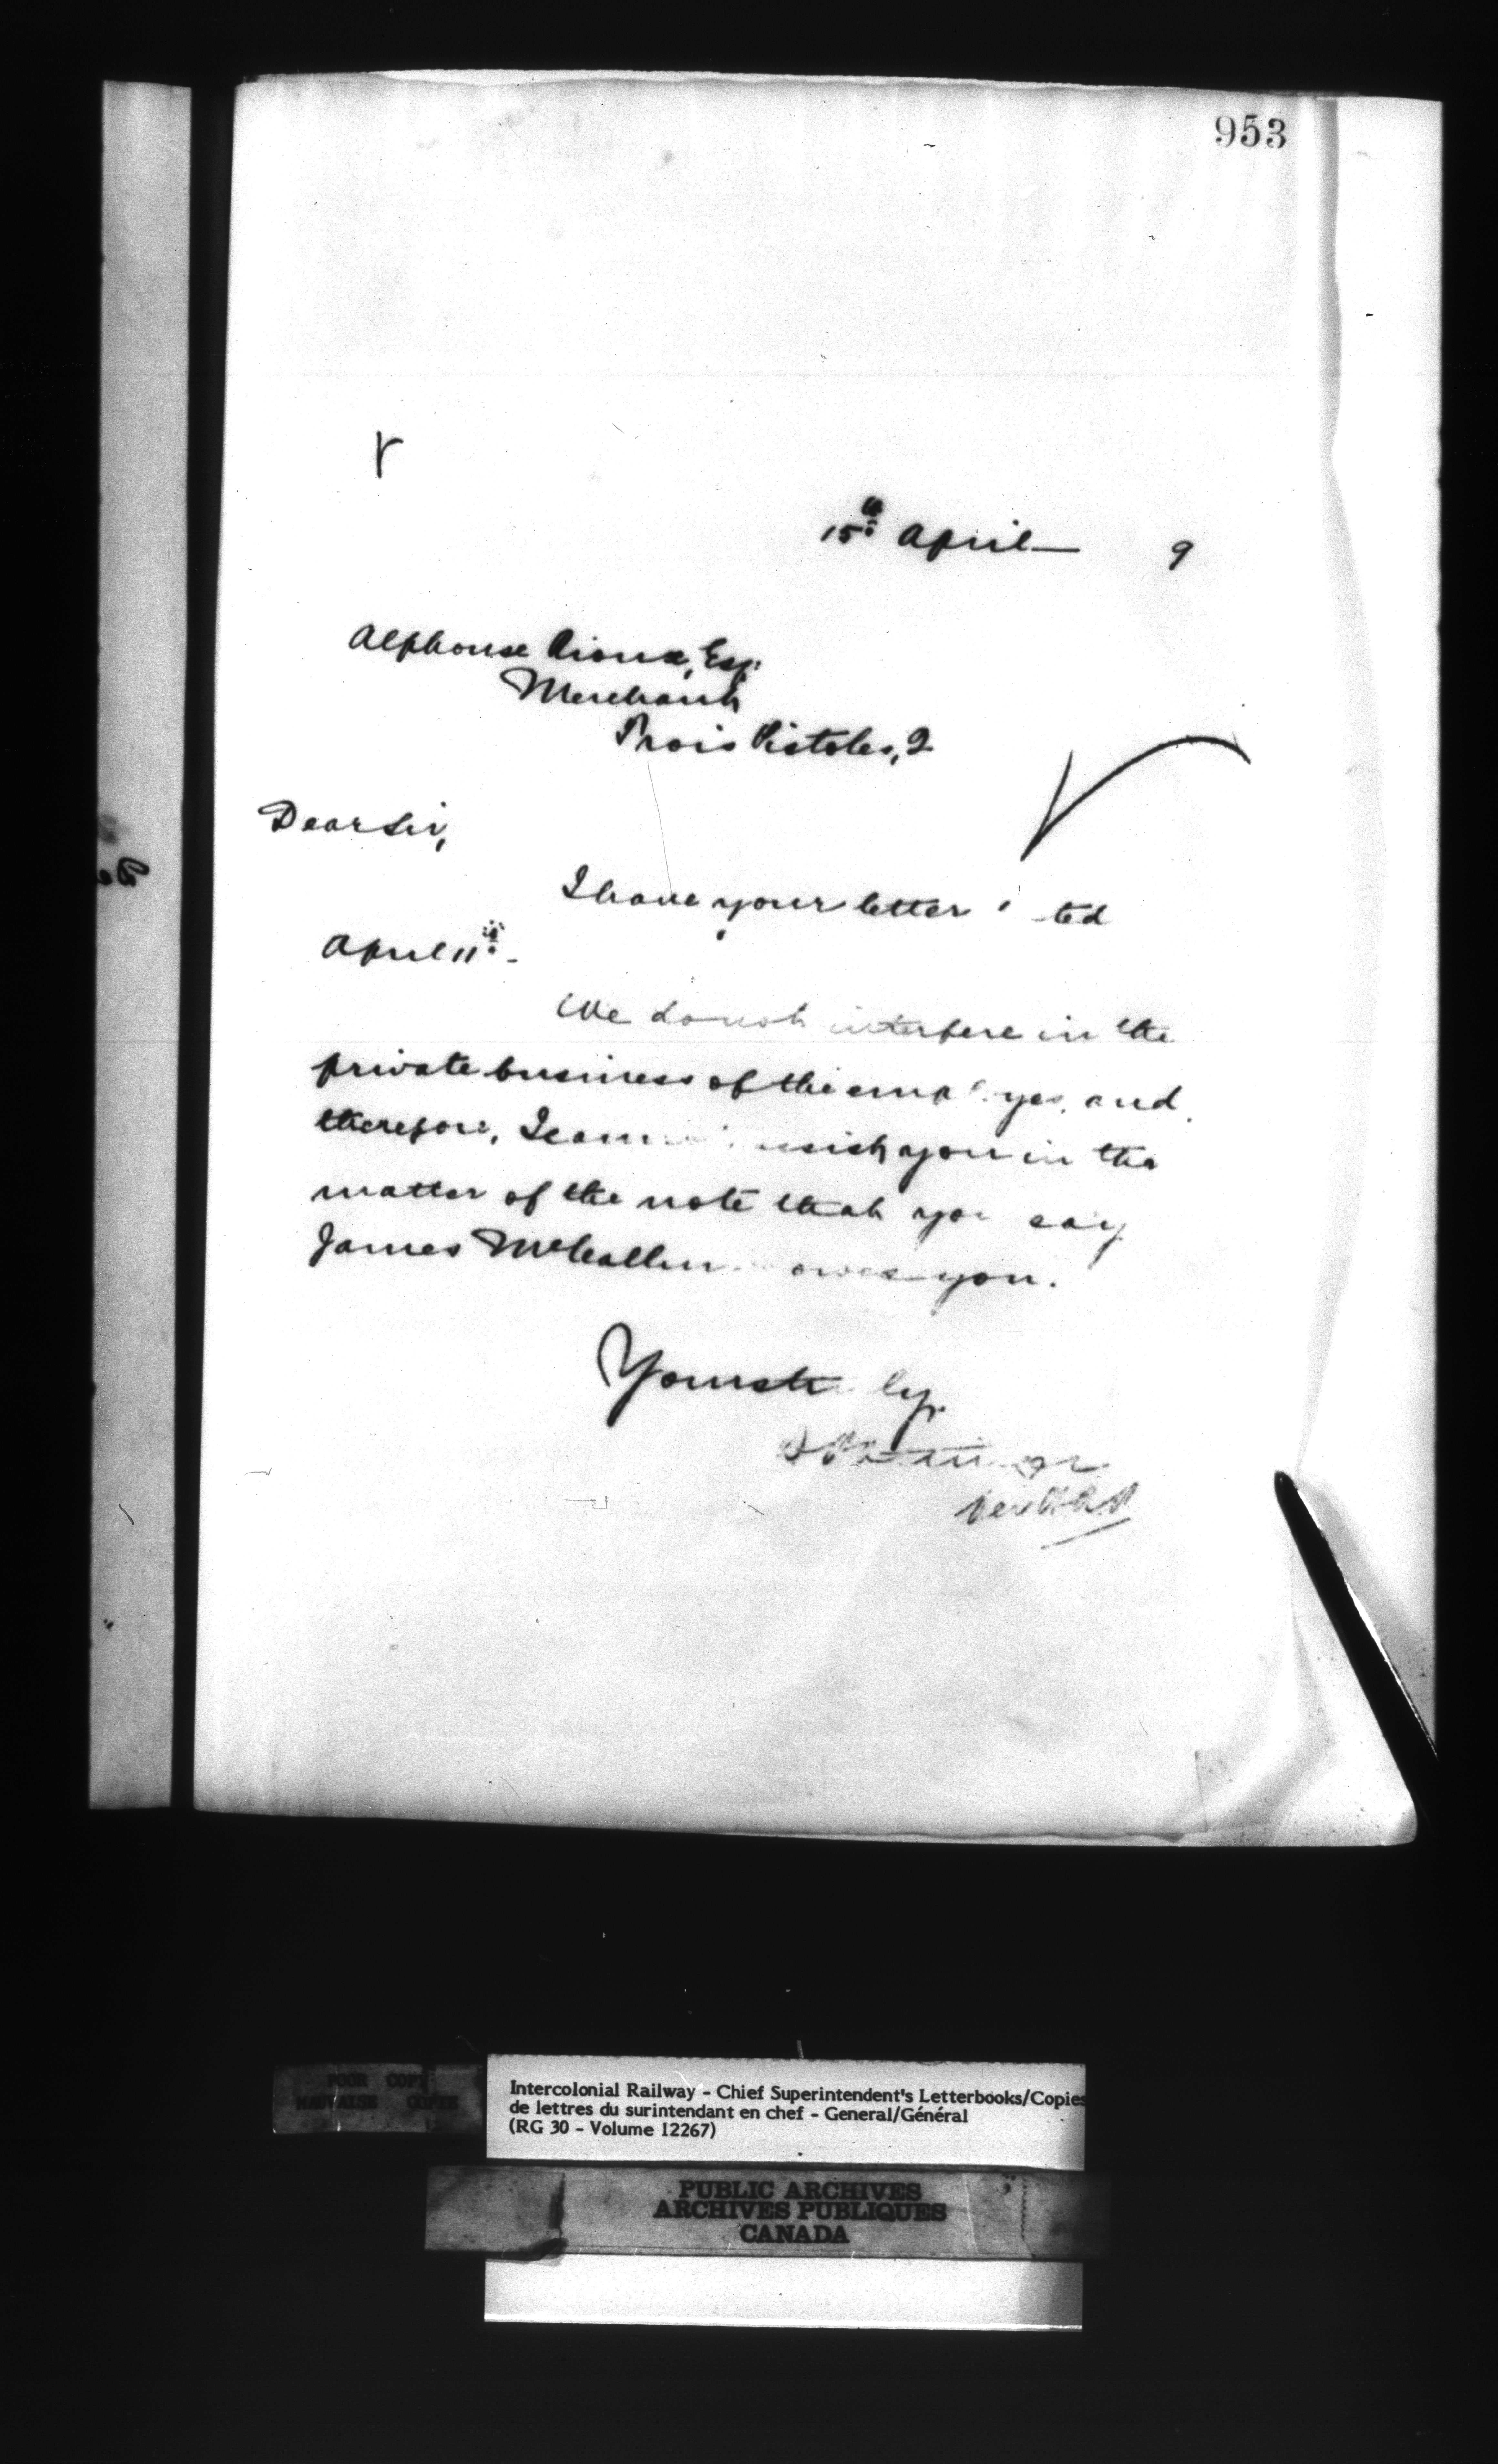 953
15th April 9
Alphonse Rioux, Esq.
Merchant
Trois Pistoles, Q
Dear Sir,
I have your letter ted
April 11th.
We do not interfere in the
private business of the employes, and
therefore, I assist you in the
matter of the note that you say
James owes you.
Yours
POOR COPY
MAUVAISE COPIE
Intercolonial Railway - Chief Superintendent's Letterbooks/Copies
de lettres du surintendant en chef - General/Général
(RG 30 - Volume 12267)
PUBLIC ARCHIVES
ARCHIVES PUBLIQUES
CANADA